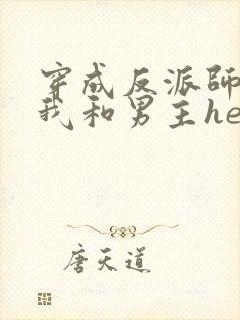 穿成反派師
我和男主he
唐天道